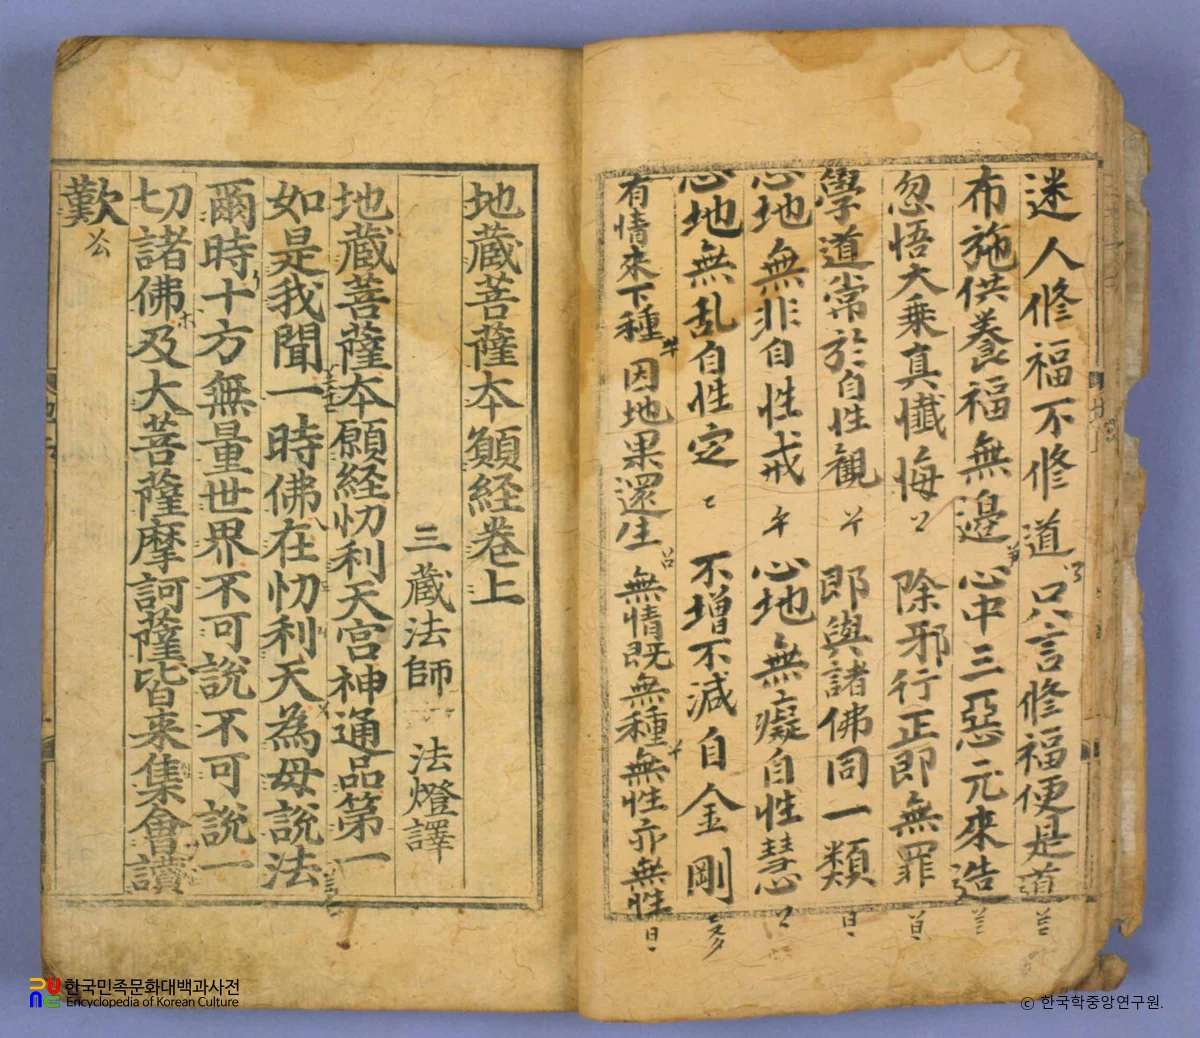 迷人修福不修道 只言修福便是道
布施供養福無邉 心中三惡元來造
忽悟大乗真懺悔 除邪行正即無罪
學道常於自性觀 即與諸佛同一類
心地無非自性戒 心地無癡自性慧
心地無乱自性定 不增不減自金剛
有情來下種 因地果還生 無情既無種 無性亦無性
地蔵菩薩夲願経卷上
三蔵法師 法燈譯
地蔵菩薩夲願経忉利天宫神通品第一
如是我聞一時佛在忉利天為母說法
爾時十方無量世界不可說不可說一
切諸佛及大菩薩摩訶薩皆来集會讚
歎
한국민족문화대백과사전
Encyclopedia of Korean Culture
© 한국학중앙연구원.